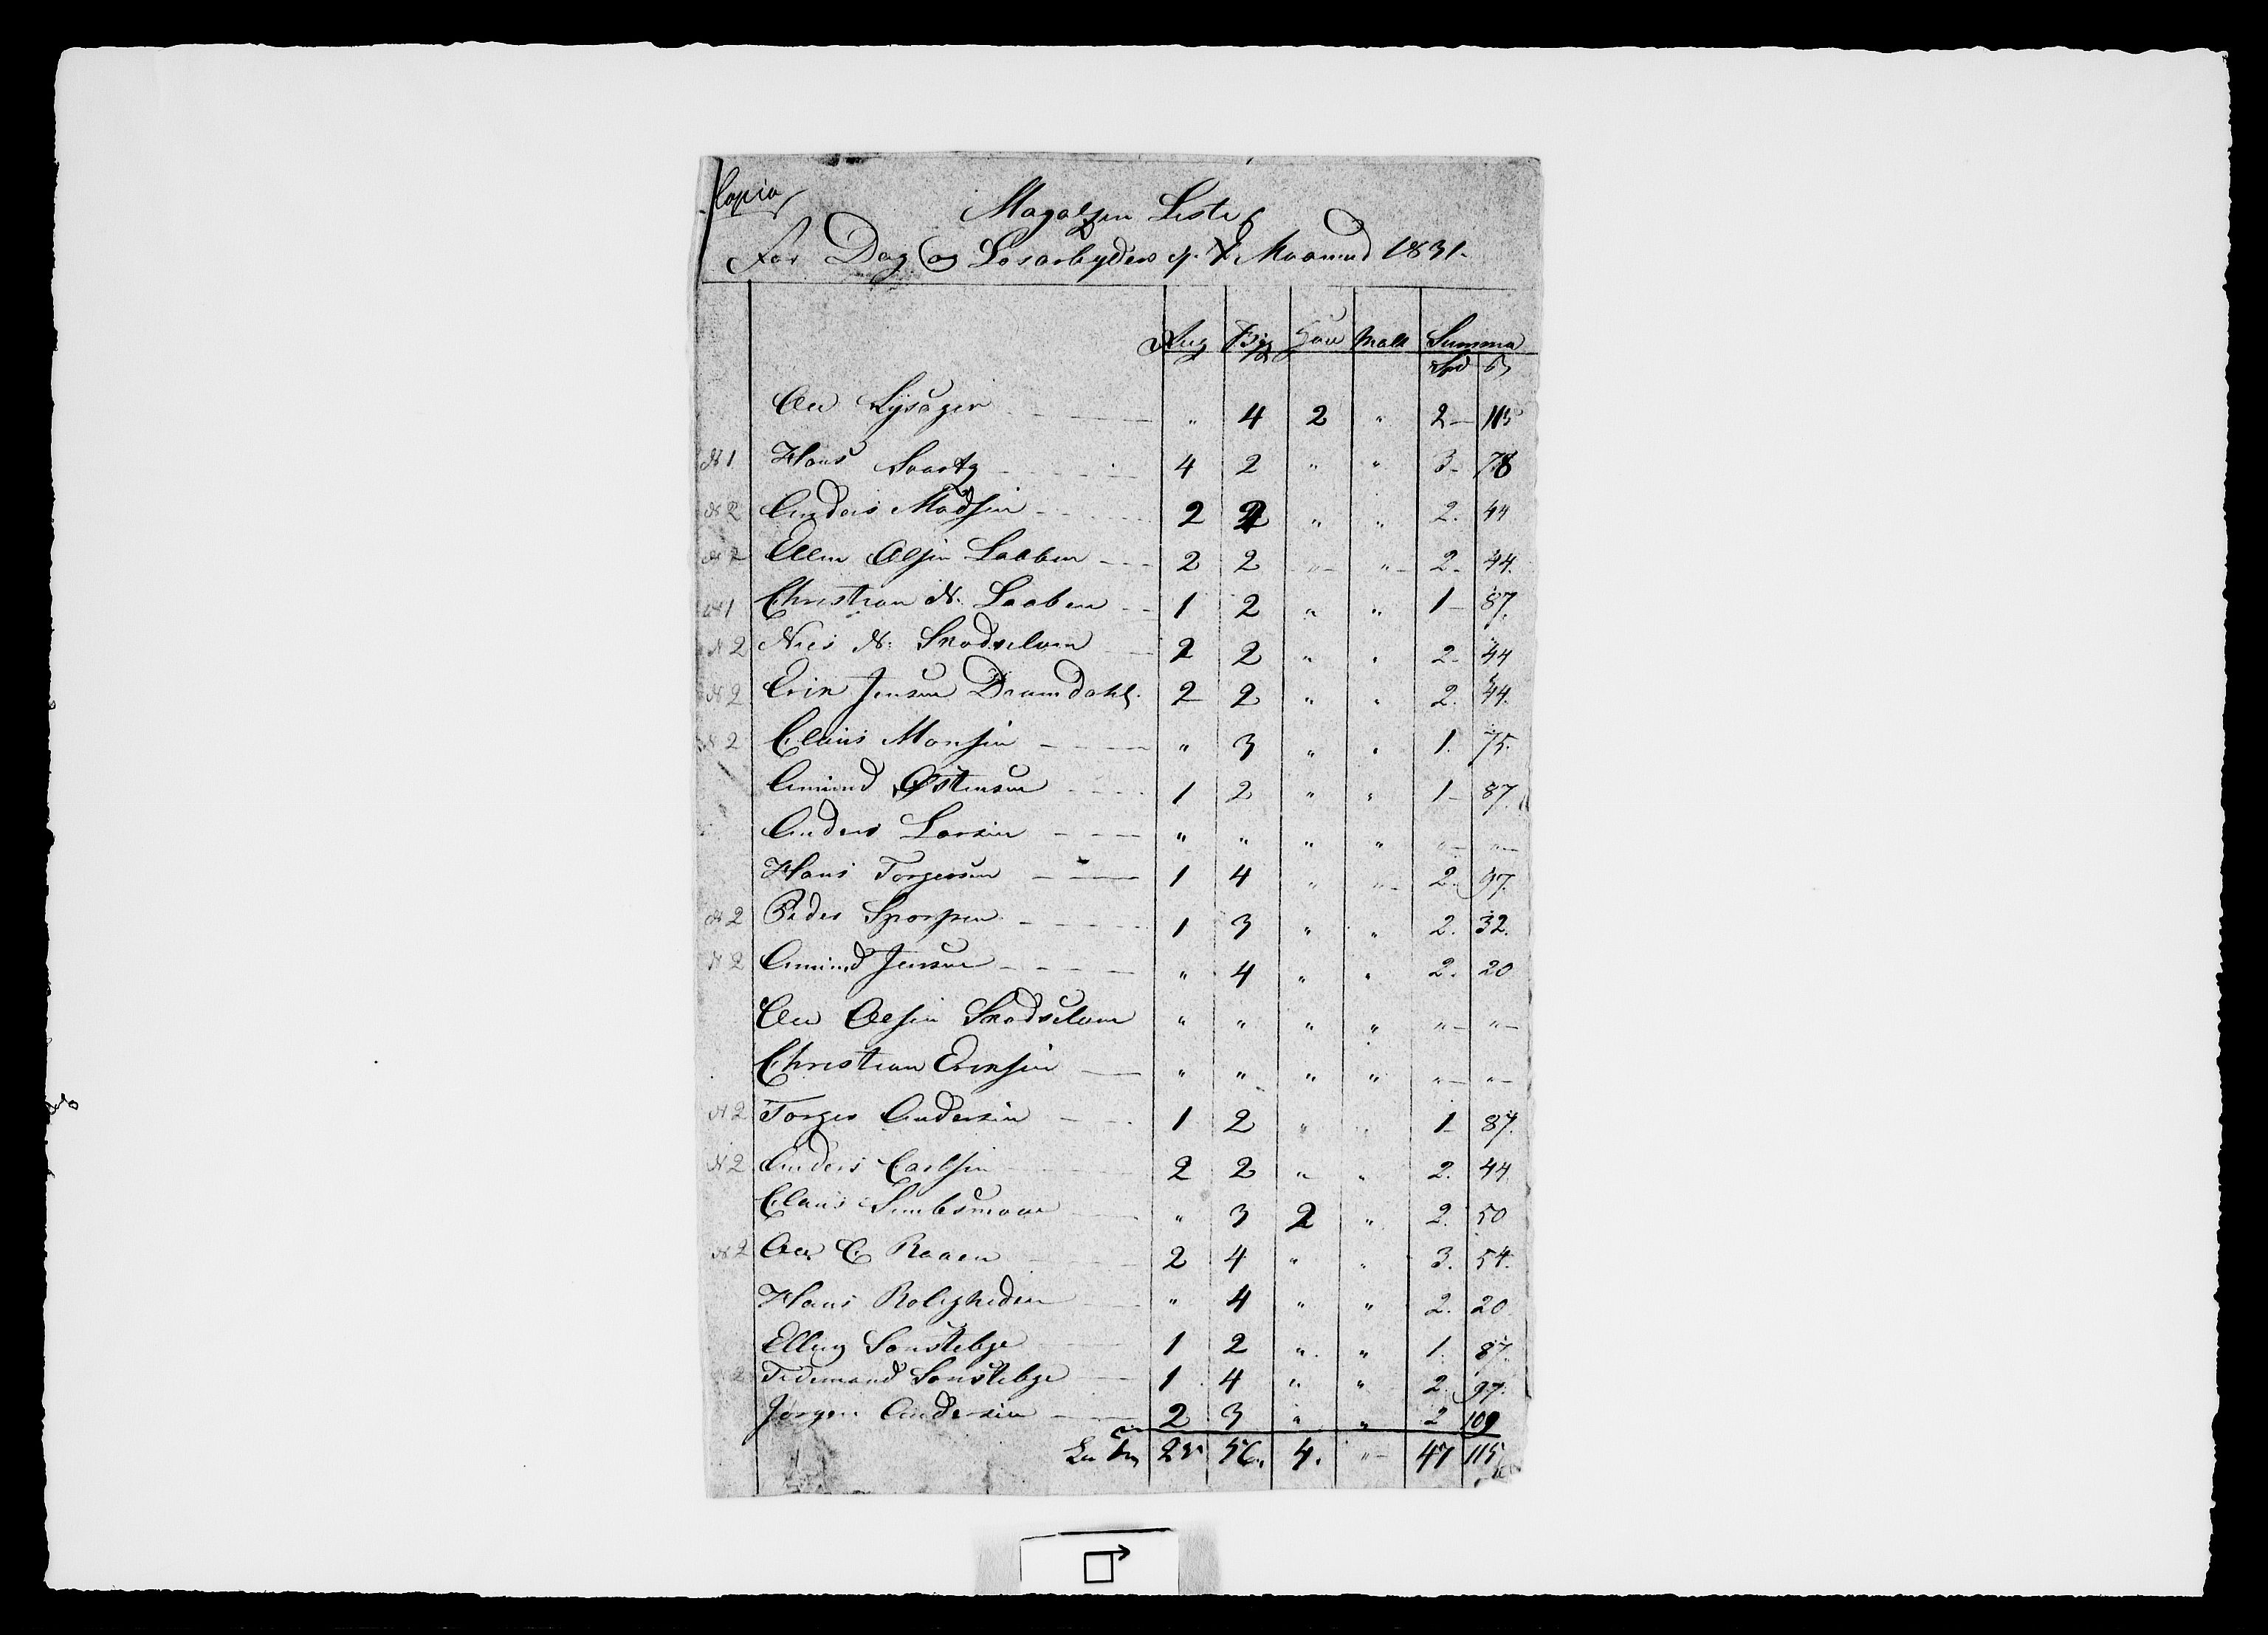 Copia
Magatzen Liste
For Dag og Losarbejdere p. Maaned 1831.
Rug Byg Hau Malt Summa
Spd ß
Ole Lysager " 4 2 " 2 - 115
N 1 Hans Svarty 4 2 " " 3 - 78
N 2 Anders Madsen 2 2 " " 2. 44
N 2 Ellen Olsen Laaben 2 2 " " 2. 44.
N 1 Christian N. Laaben 1 2 " " 1 - 87.
N 2 Niels N. Skodselven 2 2 " " 2 - 44
N 2 Erik Jensen Dramdahl. 2 2 " " 2. 44.
N 2 Claus Monsen " 3 " " 1. 75.
Amund Østensen 1 2 " " 1 - 87.
Anders Larsen " " " " " - " -
Hans Torgersen 1 4 " " 2. 97.
N 2 Peder 1 3 " " 2. 32.
N 2 Amund Jensen " 4 " " 2. 20
Ole Olsen Skodselven " " " " " - " -
Christian Eriksen " " " " " - " -
N 2 Torger Andersen 1 2 " " 1 - 87.
N 2 Anders Carlsen 2 2 " " 2. 44
Claus " 3 2 " 2. 50
N 2 Ole C Raaen 2 4 " " 3. 54.
Hans Roligheden " 4 " " 2. 20
Elling Sonstebye 1 2 " " 1. 87.
2 Tidemand Sonstebye 1 4 " " 2. 97.
Jørgen Andersen 2 3 " " 2 109
56. 4. " - 47 115